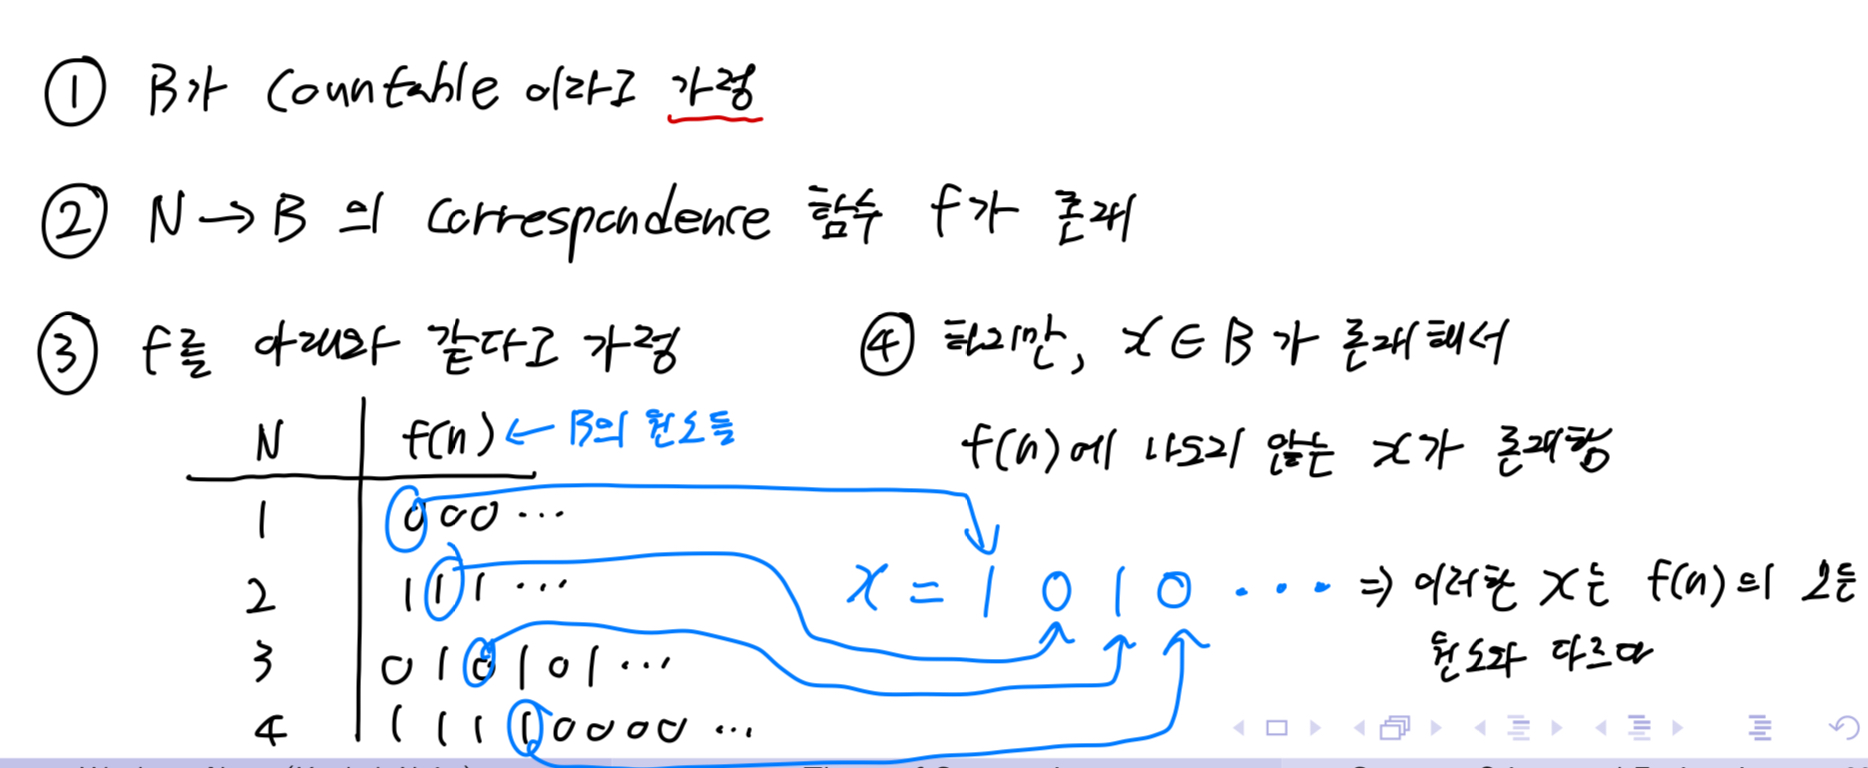 ① B가 Countable 이라고 가정
② N → B 의 correspondence 함수 f가 존재
③ f를 아래와 같다고 가정
N f(n) ← B의 원소들
1 000 ...
2 111 ...
3 010101 ...
4 11110000 ...
④ 하지만, x ∈ B 가 존재해서
f(n)에 나오지 않는 x가 존재함
x = 1010 ... ⇒ 이러한 x는 f(n)의 모든
원소와 다르다